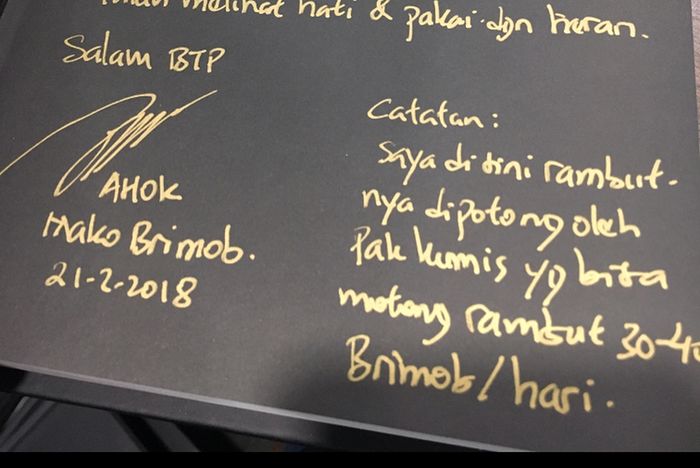 melihat hati & pakai dgn heran.
Salam BTP
AHOK
Mako Brimob.
21-2-2018
Catatan:
Saya disini rambut-
nya dipotong oleh
Pak kumis yg bisa
motong rambut 30-40
Brimob/hari.